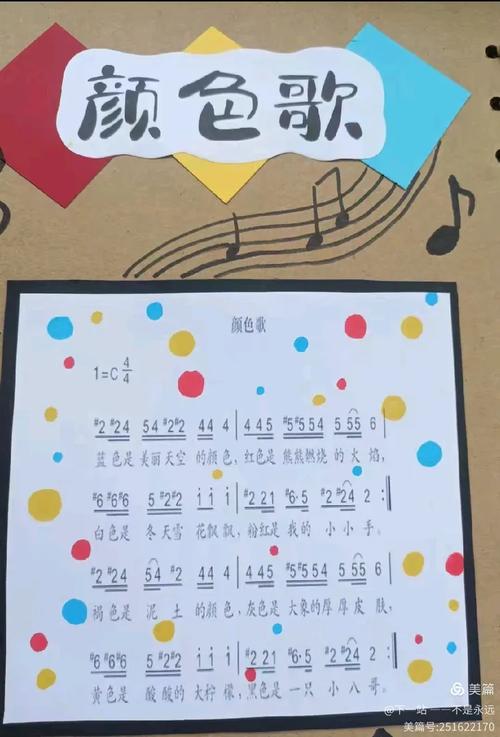 颜色歌
颜色歌
1=C 4/4
#2 #24 54 #2#2 44 4 | 4 45 #5#5 54 5 55 6 |
蓝色是美丽天空的颜色,红色是熊熊燃烧的火焰,
#6 #6#6 5 #2#2 i i i | #2 21 #6·5 #2 #24 2 :||
白色是冬天雪花飘飘,粉红是我的小小手。
#2 #24 54 #2 44 4 | #4 45 #5#5 54 5 55 6 |
褐色是泥土的颜色,灰色是大象的厚厚皮肤,
#6 #6#6 5 #2#2 i i i | #2 21 #6·5 #2 #24 2 :||
黄色是酸酸的大柠檬,黑色是一只小八哥。
美篇
@下一站——不是永远
美篇号:251622170